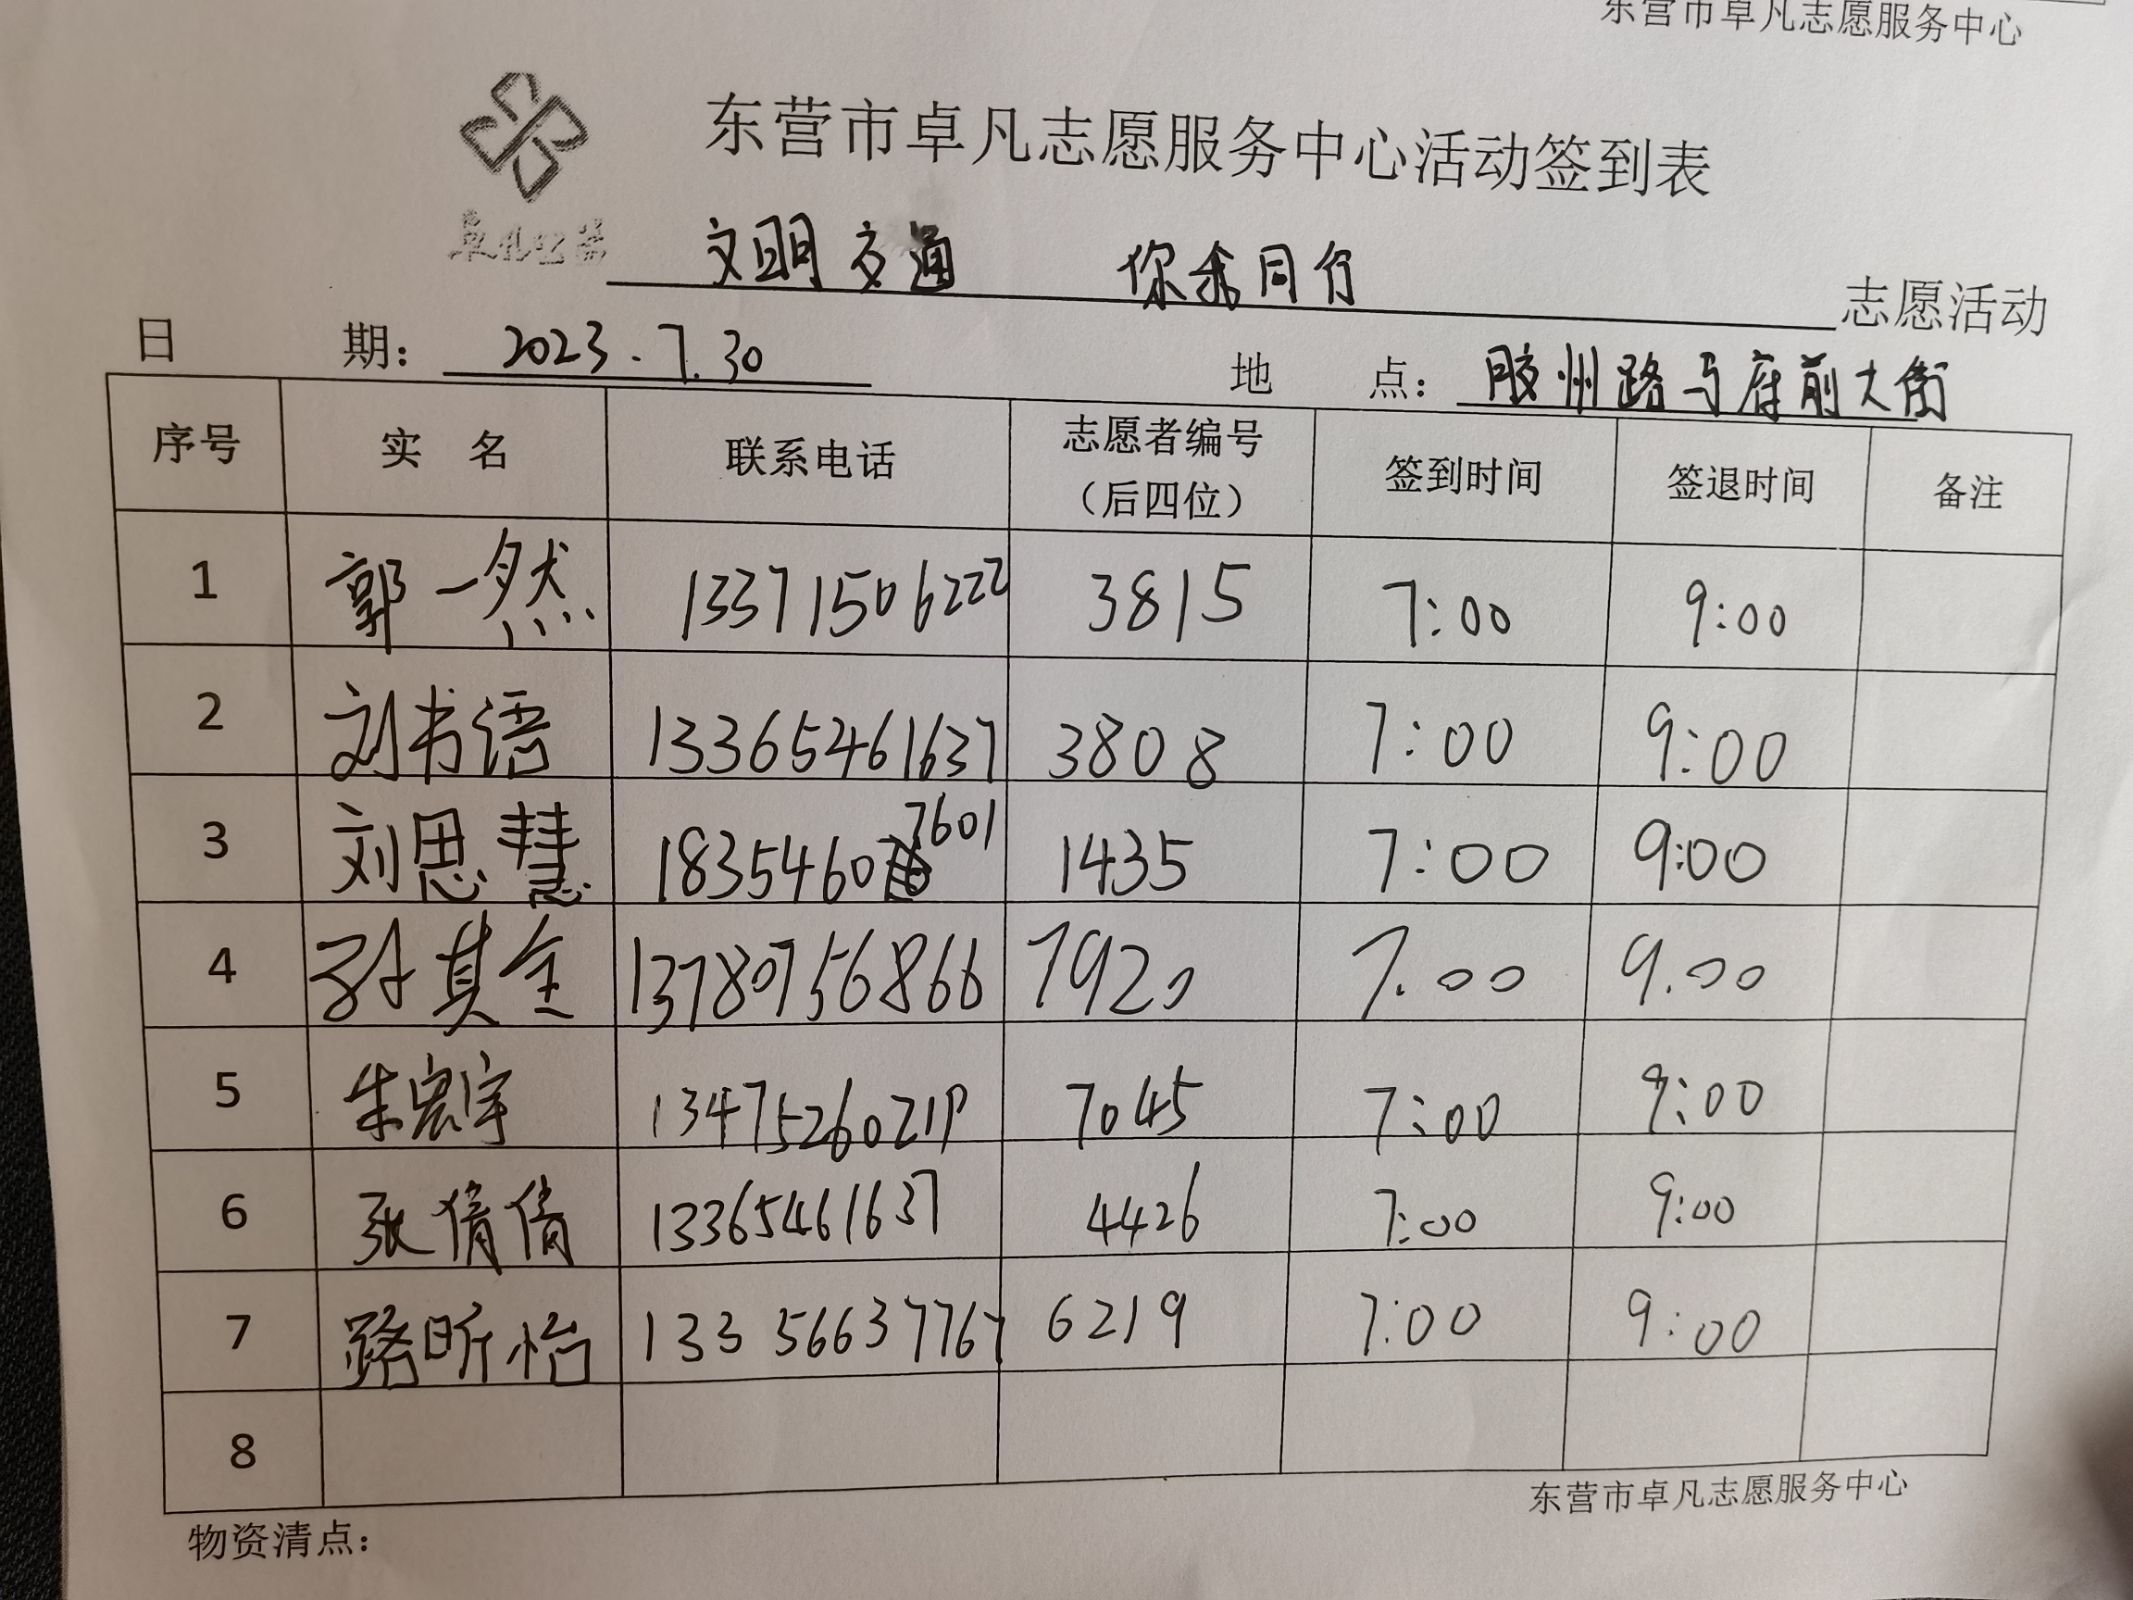 东营市卓凡志愿服务中心
东营市卓凡志愿服务中心活动签到表
卓凡公益
文明交通 你我同行 志愿活动
日 期： 2023.7.30 地 点： 胶州路与府前大街
序号 实 名 联系电话 志愿者编号（后四位） 签到时间 签退时间 备注
1 郭一然 13371506222 3815 7:00 9:00
2 刘书语 13365461637 3808 7:00 9:00
3 刘思慧 18354607601 1435 7:00 9:00
4 孙其全 13780756866 7920 7.00 9.00
5 朱宏宇 13475260219 7045 7:00 9:00
6 张倩倩 13365461637 4426 7:00 9:00
7 路昕怡 13356637767 6219 7:00 9:00
8
东营市卓凡志愿服务中心
物资清点：